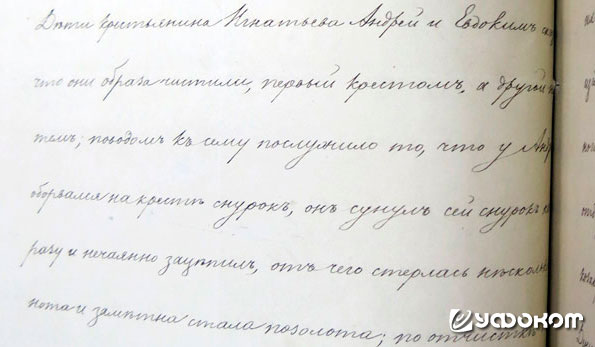 Дѣти крестьянина Игнатьева Андрей и Евдокимъ
что они образа чистили, первый крестомъ, а другой
темъ; поводомъ къ сему послужило то, что у Анд
оборвался на крестѣ снурокъ, онъ сунулъ сей снурокъ
разу и нечаянно зацѣпилъ, отъ чего стерлась нѣсколь
нота и замѣтна стала позолота; по отчисткѣ
уфоком